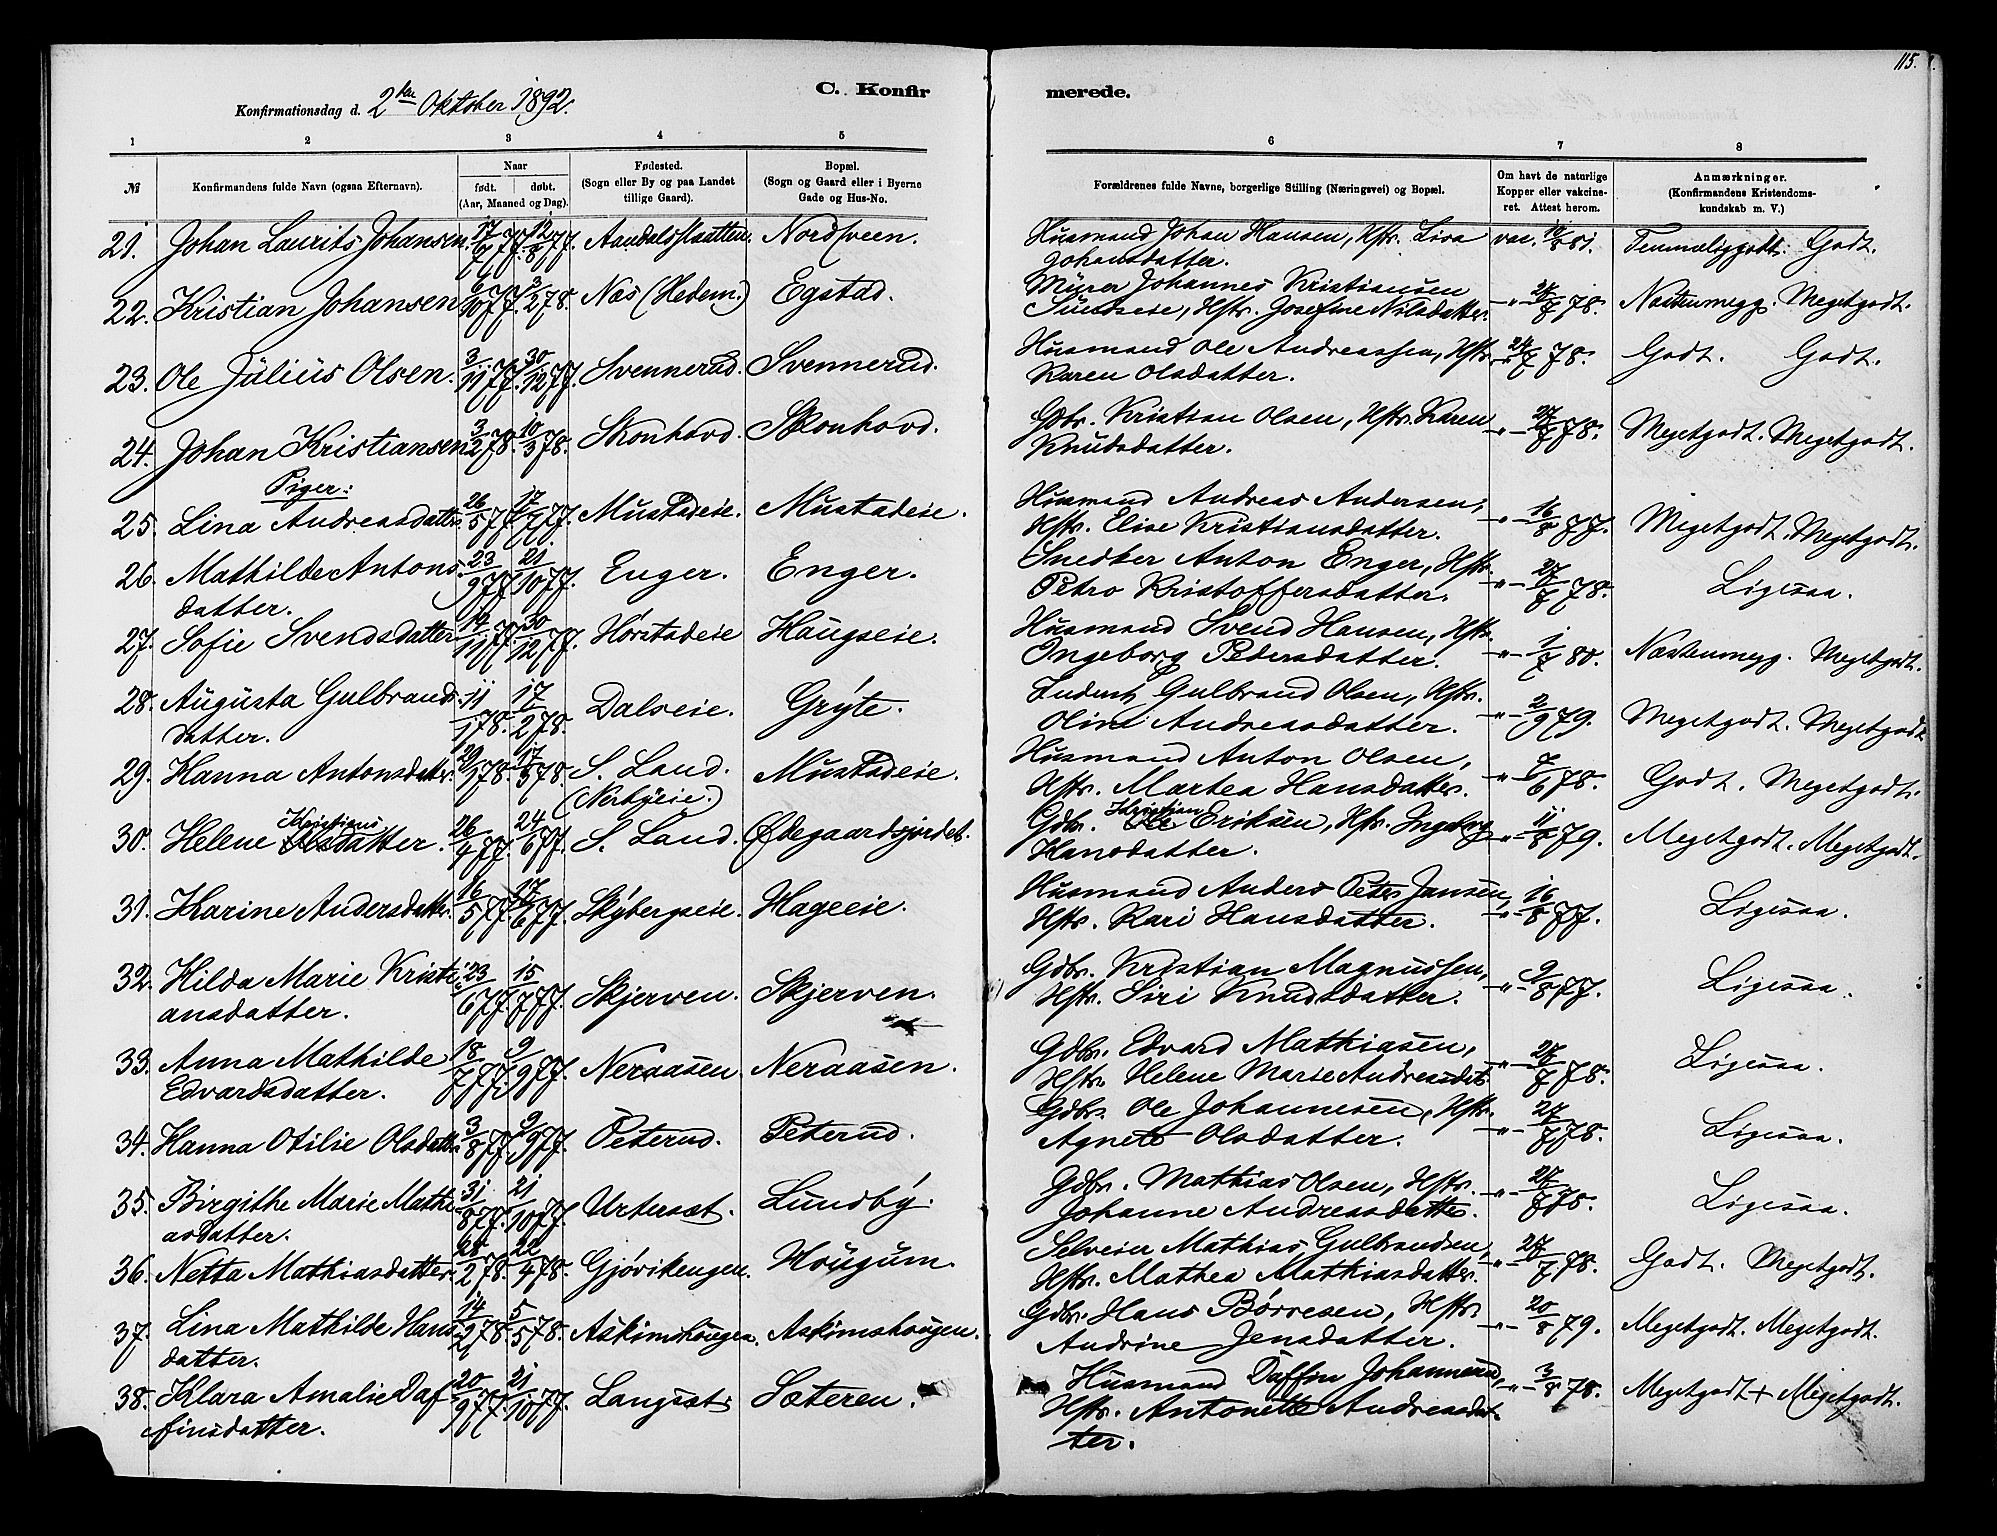 115.
C. Konfirmerede.
Konfirmationsdag d. 2den Oktober 1892.
1 2 3 4 5 6 7 8
№
Konfirmandens fulde Navn (ogsaa Efternavn).
Naar
født. døbt.
(Aar, Maaned og Dag).
Fødested.
(Sogn eller By og paa Landet
tillige Gaard).
Bopæl.
(Sogn og Gaard eller i Byerne
Gade og Hus-No.
Forældrenes fulde Navne, borgerlige Stilling (Næringsvei) og Bopæl.
Om havt de naturlige
Kopper eller vakcineret. Attest herom.
Anmærkninger.
(Konfirmandens Kristendomskundskab m. V.)
21. Johan Laurits Johansen 17/7 77. 12/8 77. Aandalsslaatten Nordsveen. Husmand Johan Hansen, Hstr. Lisa
Johansdatter. vac. 19/8 81. Temmeliggodt. Godt.
22. Kristian Johansen 6/10 77. 3/2 78. Næs (Hedem.) Egstad. Murer Johannes Kristiansen
Sundseie, Hstr. Josefine Nilsdatter. -"- 27/7 78. Næstenmegg. Megetgodt.
23. Ole Julius Olsen. 3/11 77. 30/12 77. Svennerud. Svennerud. Husmand Ole Andreassen, Hstr.
Karen Olsdatter. 24/7 78. Godt. Godt.
24. Johan Kristiansen 3/2 78. 10/3 78. Skonhovd. Skonhovd. Gdbr. Kristian Olsen, Hstr. Karen
Knudsdatter. -"- 27/7 78. Megetgodt. Megetgodt.
Piger:
25. Lina Andreasdatter. 26/5 77. 17/7 77. Mustadeie. Mustadeie. Husmand Andreas Andersen,
Hstr. Elise Kristiansdatter. -"- 16/8 77. Megetgodt. Megetgodt.
26. Mathilde Antons-
datter. 23/9 77. 21/10 77. Enger. Enger. Snedker Anton Enger, Hstr.
Petro Kristoffersdatter. -"- 27/7 78. Ligesaa.
27. Sofie Svendsdatter 14/11 77. 30/12 77. Hørstadeie Haugseie. Husmand Svend Hansen, Hstr.
Ingeborg Pedersdatter. -"- 1/7 80. Næstenmegg. Megetgodt.
28. Augusta Gulbrands-
datter. 11/1 78. 17/2 78. Dalseie. Gryte. Inderst Gulbrand Olsen, Hstr.
Oline Andreasdatter. -"- 2/9 79. Megetgodt. Megetgodt
29. Hanna Antonsdatter. 78. 17/3 78. S. Land.
(Nerbyeie.) Mustadeie. Husmand Anton Olsen,
Hstr. Martea Hansdatter. -"- 7/6 78. Godt. Megetgodt.
30. Helene Kristians
datter. 26/4 77. 24/6 77. S. Land. Ødegaardsjordet. Gdbr. Christian Eriksen, Hstr. Ingeborg
Hansdatter. -"- 11/8 79. Megetgodt. Megetgodt.
31. Karine Andersdatter. 16/5 77. 17/6 77. Skybergseie. Hageeie. Husmand Anders Peter Jansen,
Hstr. Kari Hansdatter. -"- 16/8 77. Ligesaa.
32. Hilda Marie Kristi-
ansdatter. 23/6 77. 15/7 77. Skjerven. Skjerven. Gdbr. Kristian Magnussen,
Hstr. Siri Knudsdatter. -"- 9/8 77. Ligesaa.
33. Anna Mathilde
Edvardsdatter. 18/7 77. 9/9 77. Neraasen. Neraasen. Gdbr. Edvard Mathiasen,
Hstr. Helene Marie Andreasdt. -"- 27/7 78. Ligesaa.
34. Hanna Otilie Olsdatter 3/8 77. 9/9 77. Peterud. Peterud. Gdbr. Ole Johannesen, Hstr.
Agnete Olsdatter. -"- 27/7 78. Ligesaa.
35. Birgithe Marie Mathi-
asdatter. 31/8 77. 21/10 77. Urtersæt. Lundby. Gdbr. Mathias Olsen, Hstr.
Johanne Andreasdatter. -"- 27/7 78. Ligesaa.
36. Netta Mathiasdatter. 28/2 78. 22/4 78. Gjøvikengen. Hougum. Selveier Mathias Gulbrandsen,
Hstr. Mathea Mathiasdatter. -"- 27/7 78. Godt. Megetgodt.
37. Lina Mathilde Hans-
datter. 14/2 78. 5/5 78. Askimshougen. Askimshougen. Gdbr. Hans Børresen, Hstr.
Andrine Jensdatter. -"- 20/8 79. Megetgodt. Megetgodt.
38. Klara Amalie Daf-
finsdatter. 20/9 77. 21/10 77. Langsæt. Sæteren. Husmand Daffin Johannesen,
Hstr. Antonette Andreasdat-
ter. -"- 3/8 78. Megetgodt + Megetgodt.